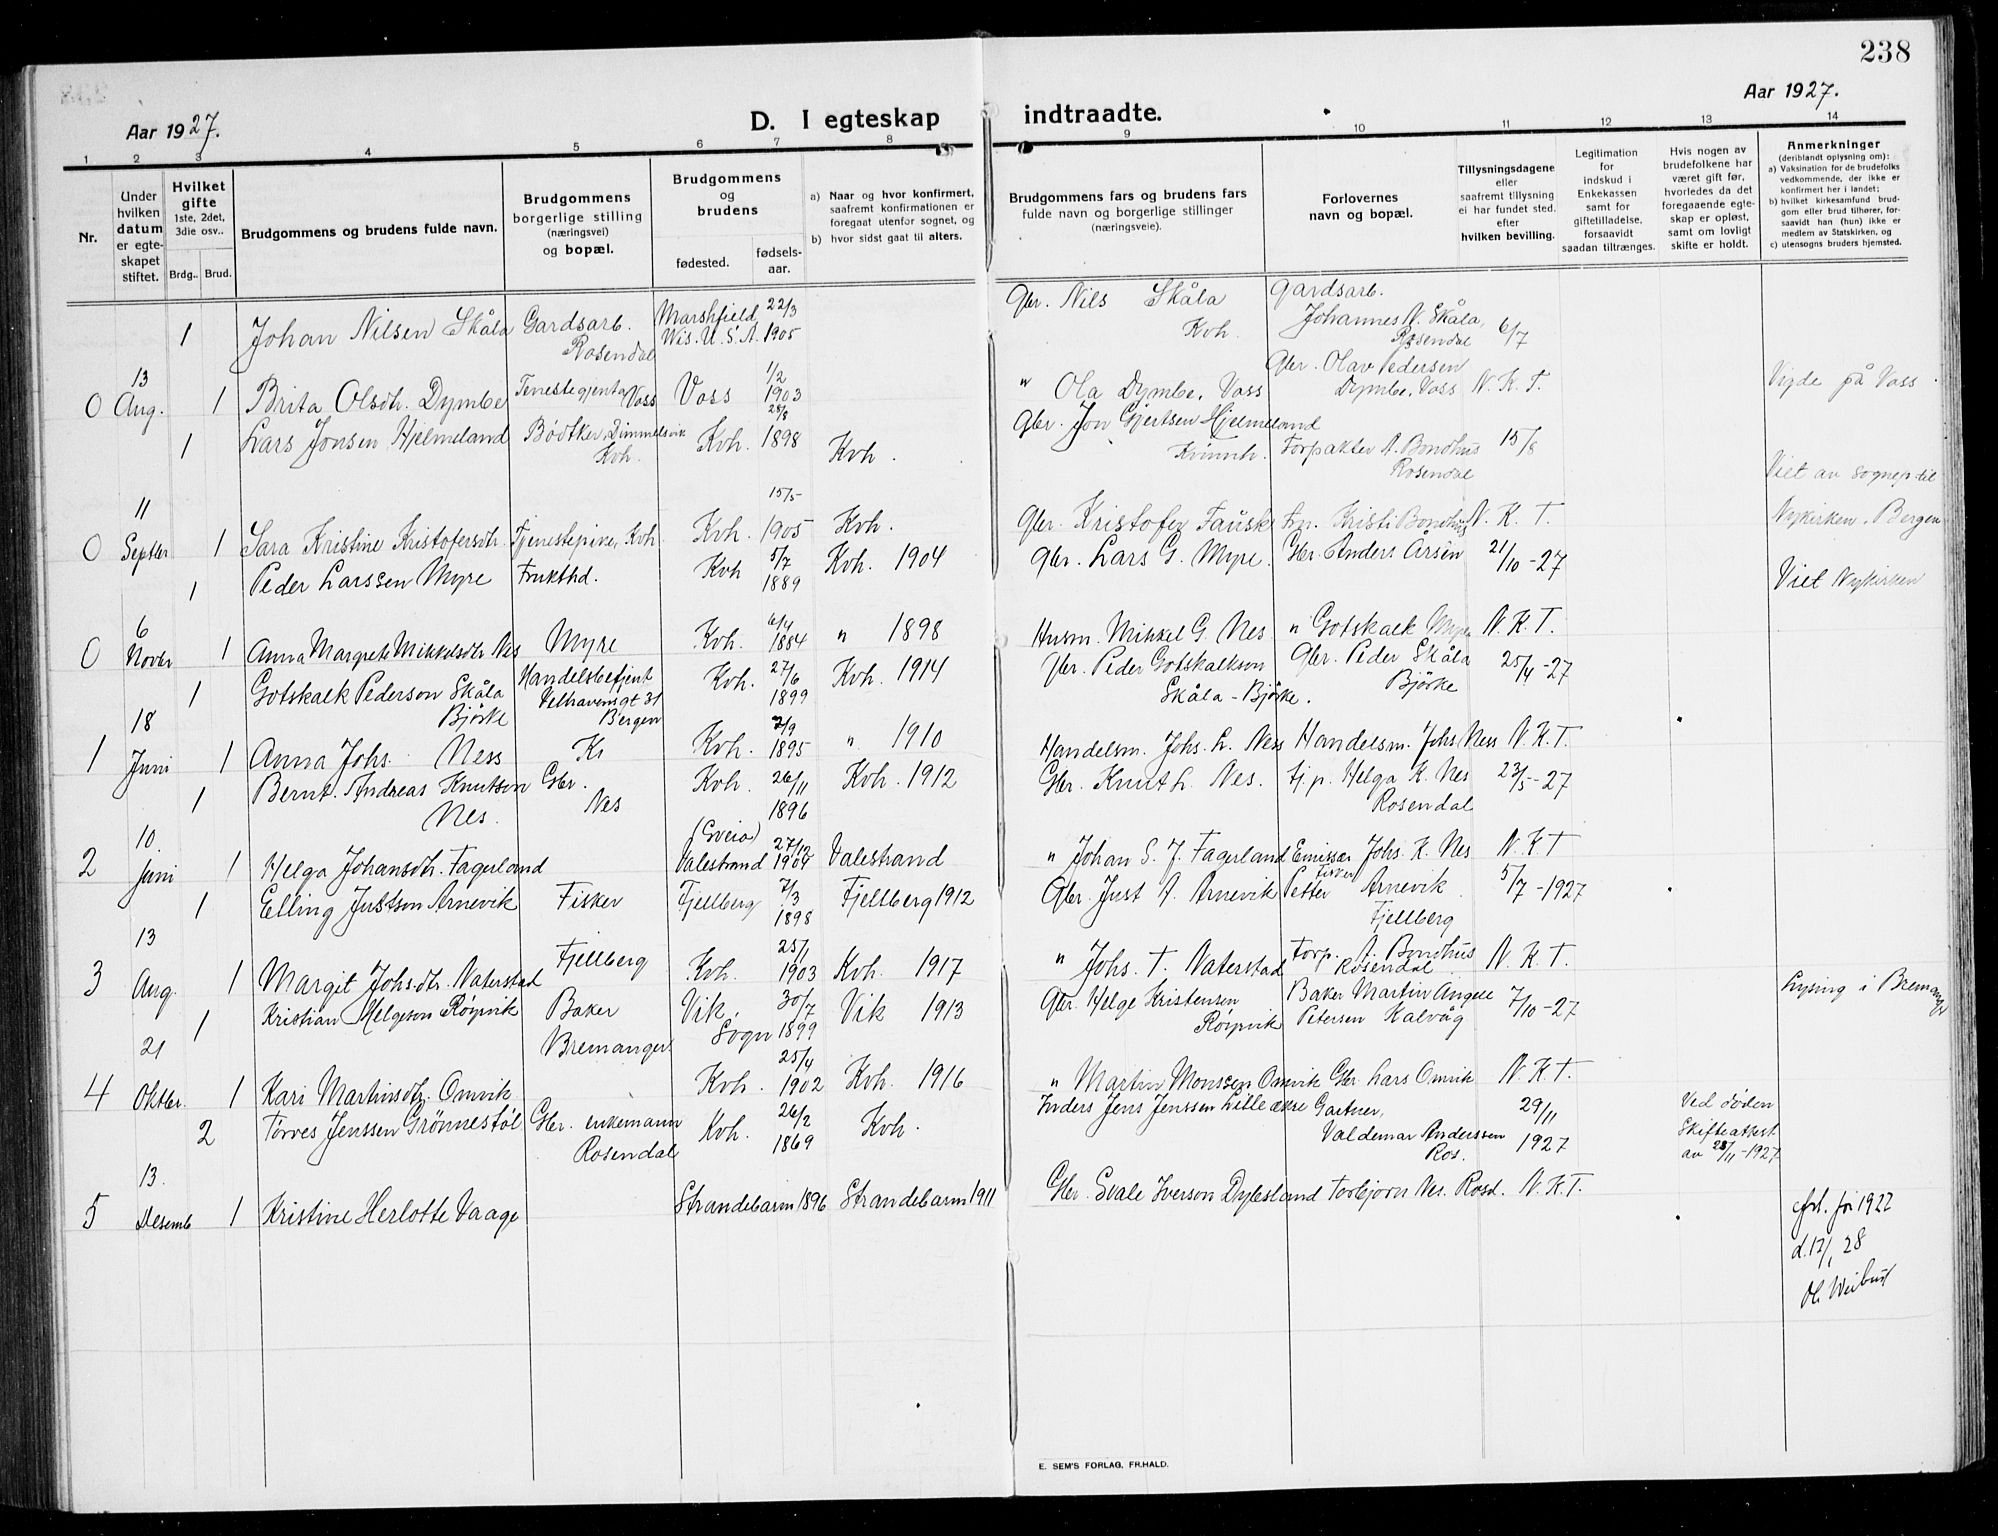 238
Aar 1927.
Aar 1927.
D. I egteskap indtraadte.
1 2 3 4 5 6 7 8 9 10 11 12 13 14
Nr.
Under hvilken datum er egteskapet stiftet.
Hvilket gifte
1ste, 2det, 3die osv..
Brdg.. Brud.
Brudgommens og brudens fulde navn.
Brudgommens borgerlige stilling (næringsvei) og bopæl.
Brudgommens og brudens
fødested.
fødselsaar.
a) Naar og hvor konfirmert, saafremt konfirmationen er foregaat utenfor sognet, og
b) hvor sidst gaat til alters.
Brudgommens fars og brudens fars fulde navn og borgerlige stillinger (næringsveie).
Forlovernes navn og bopæl.
Tillysningsdagene eller saafremt tillysning ei har fundet sted. efter hvilken bevilling.
Legitimation for indskud i Enkekassen samt for giftetilladelse, forsaavidt saadan tiltrænges.
Hvis nogen av brudefolkene har været gift før, hvorledes da det foregaaende egteskap er opløst, samt om lovligt skifte er holdt.
Anmerkninger
(deriblandt oplysning om):
a) Vaksination for de brudefolks vedkommende, der ikke er konfirmert her i landet;
b) hvilket kirkesamfund brudgom eller brud tilhører, forsaavidt han (hun) ikke er medlem av Statskirken, og
c) utensogns bruders hjemsted.
1 Johan Nilsen Skåla Gardsarb. Rosendal Marshfield Wis. U.S.A. 22/3 1905 Gbr. Nils Skåla Kvh. Gardsarb. Johannes N. Skåla, Rosendal 6/7
0 13 Aug. 1 Brita Olsdtr. Dymbe Tenestegjenta Voss Voss 1/2 1903 " Ola Dymbe, Voss Gbr. Olav Pedersen Dymbe, Voss N.K.T. Vigde på Voss.
1 Lars Jonsen Hjelmeland Bødtker, Dimmelsvik Kvh. Kvh. 28/8 1898 Kvh. Gbr. Jon Gjertsen Hjelmeland Kvinnh. Forpakter A. Bondhus Rosendal 15/8
0 11 Septbr 1 Sara Kristine Kristofersdtr. Tjenestepike, Kvh. Kvh. 15/5 1905 Kvh. Gbr. Kristofer Fausk Frp. Kristi Bondhus N.K.T. Viet av sognep. til Nykirken, Bergen
1 Peder Larssen Myre Frukthd. Kvh 5/7 1889 Kvh. 1904 Gbr. Lars G. Myre. Gbr. Anders Årsen 21/10-27 Viet Nykirken
0 6 Novbr 1 Anna Margrete Mikkelsdtr Nes Myre Kvh. 6/4 1884 " 1898 Husm. Mikkel G. Nes " Gotskalk Myre N.K.T.
1 Gotskalk Pederson Skåla Bjørke Handelsbetjent Welhavensgt 31 Bergen Kvh. 27/6 1899 Kvh. 1914 Gbr. Peder Gotskalkson Skåla-Bjørke. Gbr. Peder Skåla Bjørke 25/4-27
1 18 Juni 1 Anna Johs. Ness Ks Kvh. 2/9 1895 " 1910 Handelsm. Johs. L. Ness Handelsm. Johs Ness N.K.T.
1 Bernt Andreas Knutson Nes. Gbr. Nes Kvh. 26/11 1896 Kvh. 1912 Gbr. Knut L. Nes. tj.p. Helga K. Nes Rosendal 23/5-27
2 10. Juni 1 Helga Johansdtr. Fagerland (Sveio) Valestrand 27/12 1904 Valestrand " Johan S. J. Fagerland Emissær Johs. K. Nes N.K.T
1 Elling Justson Arnevik Fisker Fjellberg Fjellberg 7/3 1898 Fjellberg 1912 Gbr. Just A. Arnevik Fisker Petter Arnevik Fjellberg 5/7-1927
3 13 Aug. 1 Margit Johs.dtr. Naterstad Kvh. 25/1 1903 Kvh. 1917 " Johs. T. Naterstad Forp. A. Bondhus Rosendal N.K.T.
1 Kristian Helgeson Røysvik Baker Bremanger Vik, Sogn 30/7 1899 Vik 1913 Gbr. Helge Kristensen Røysvik Baker Martin Angell Petersen Kalvåg 7/10-27 Lysing i Bremanger
4 21 Oktbr. 1 Kari Martinsdtr. Omvik Kvh. 25/4 1902 Kvh. 1916 " Martin Monssen Omvik Gbr. Lars Omvik N.K.T.
2 Torves Jenssen Grønnestøl Gbr. enkemann Rosendal Kvh. 26/2 1869 Kvh. Inders Jens Jenssen Lilleækre Gartner, Valdemar Anderssen Ros. 29/11 1927 Ved døden Skifteattest av 28/11-1927
5 13. Desemb 1 Kristine Herlotte Vaage Strandebarm 1896 Strandebarm 1911 Gbr. Svale Iverson Dylesland Torbjørn Nes. Rosd. N.K.T.
d. 12/1 28
E. SEM'S FORLAG, FR.HALD.